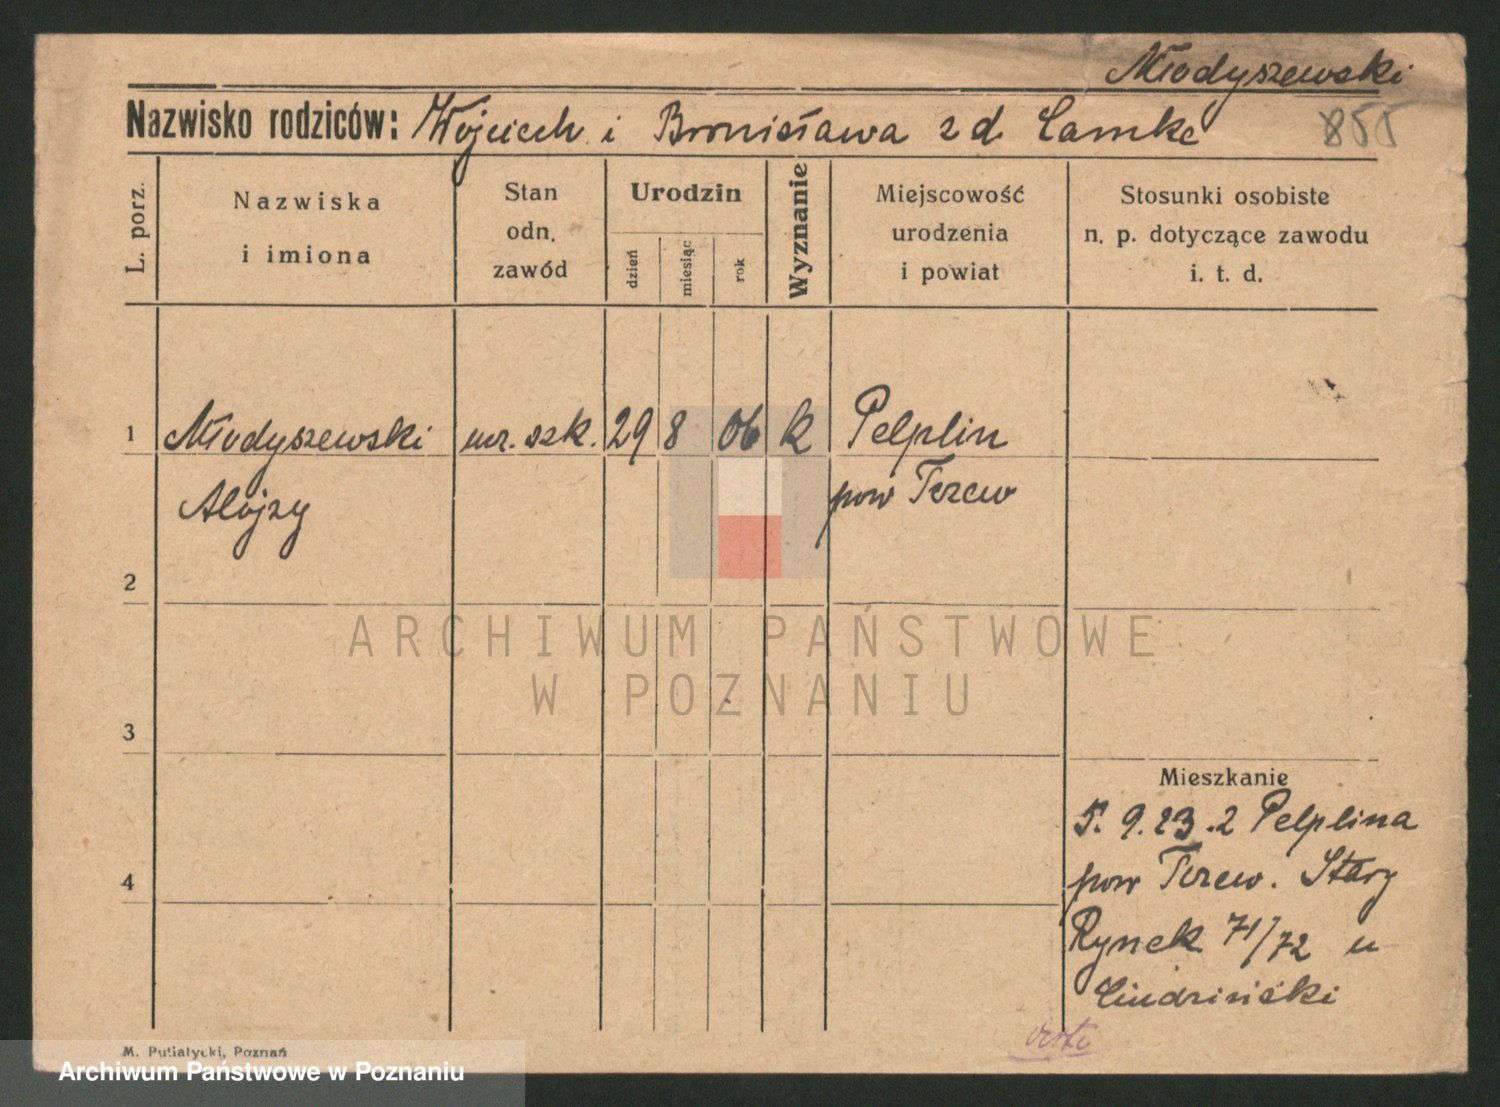 Młodyszewski
Nazwisko rodziców: Wojciech i Bronisława z d. Lamke
855
L. porz.
Nazwiska
i imiona
Stan
odn.
zawód
Urodzin
dzień
miesiąc
rok
Wyznanie
Miejscowość
urodzenia
i powiat
Stosunki osobiste
n. p. dotyczące zawodu
i. t. d.
1 Młodyszewski ucz. szk. 29 8 06 k Pelplin
Alojzy pow Tczew
2
3
4
ARCHIWUM PAŃSTWOWE
W POZNANIU
Mieszkanie
5. 9. 23. z Pelplina
pow Tczew. Stary
Rynek 71/72 u
M. Putiatycki, Poznań
Archiwum Państwowe w Poznaniu